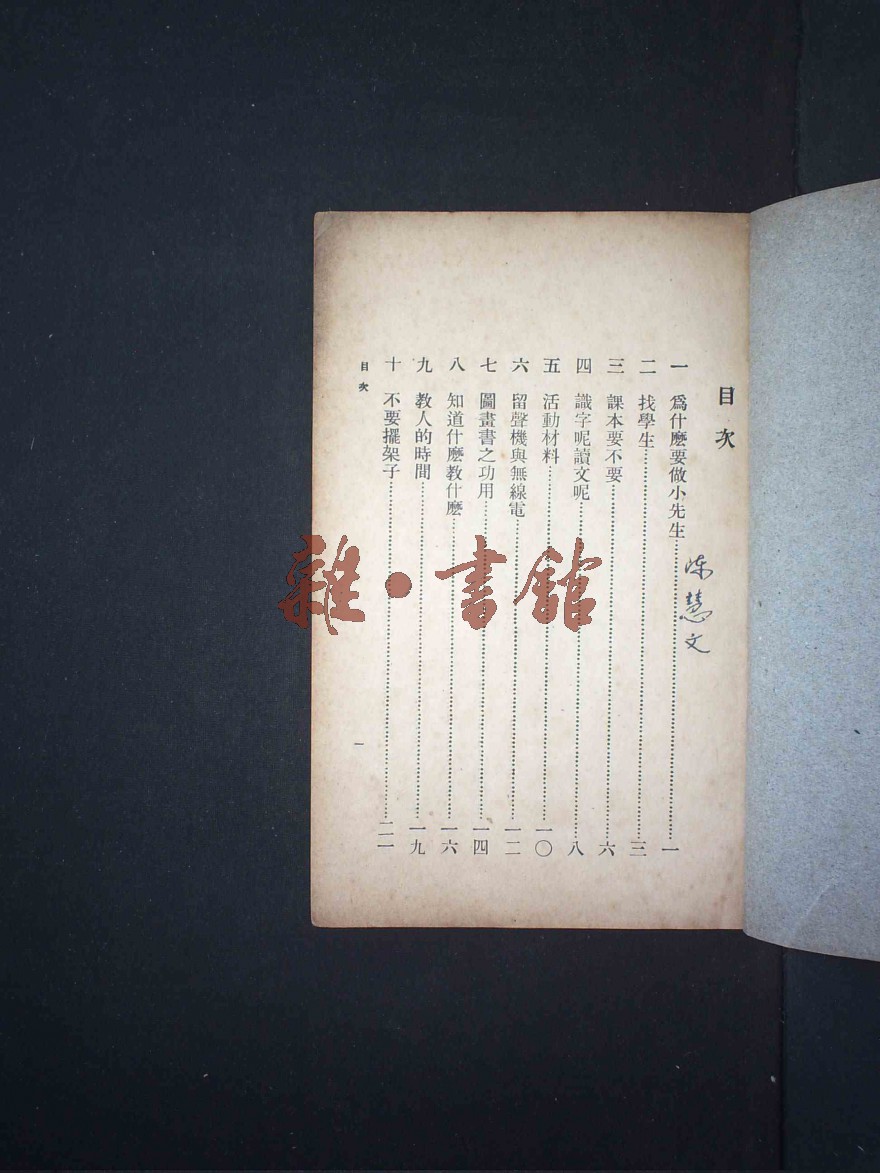 目次
一　爲什麽要做小先生……一
二　找學生……三
三　課本要不要……六
四　識字呢讀文呢……八
五　活動材料……一〇
六　留聲機與無線電……一二
七　圖畫書之功用……一四
八　知道什麽教什麽……一六
九　教人的時間……一九
十　不要擺架子……二一
目次
一
陈慧文
雜·書館